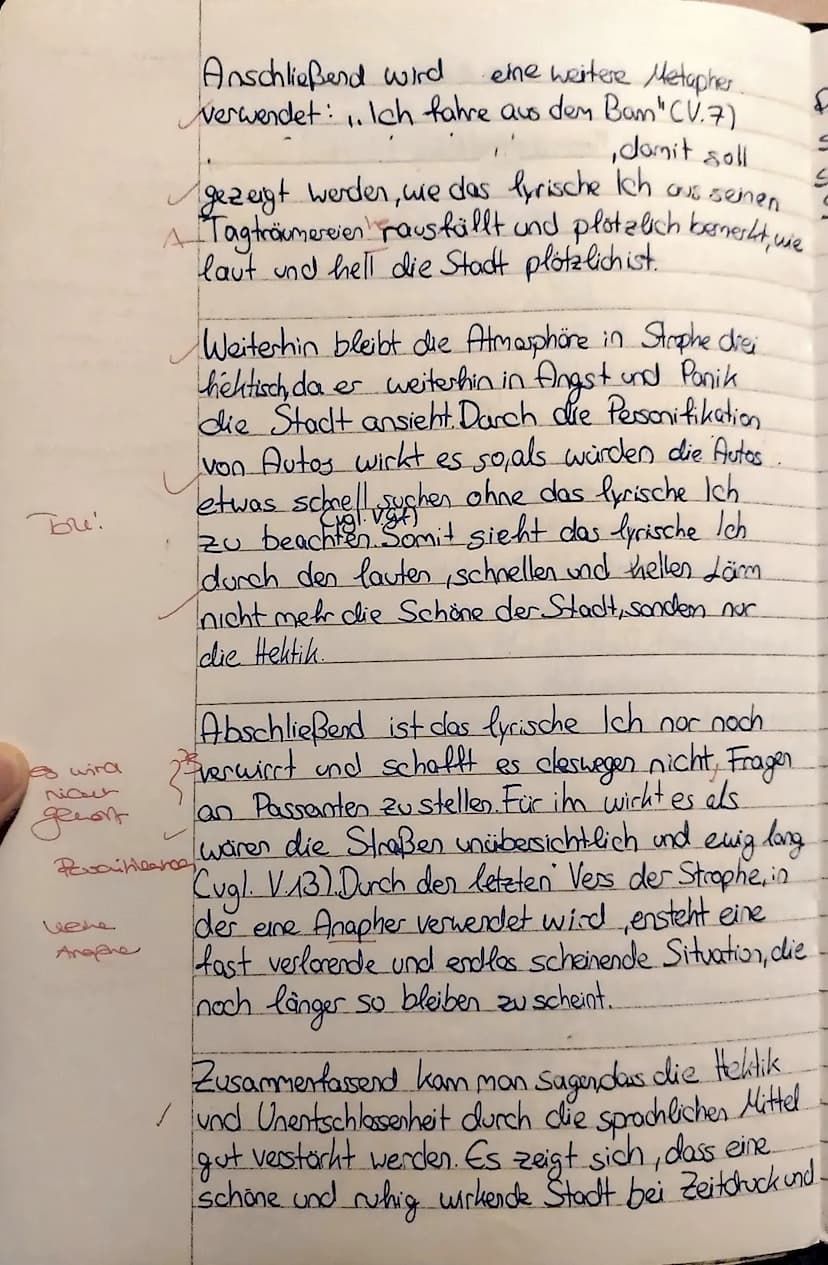 Anschließend wird eine weitere Metapher
verwendet: „Ich fahre aus dem Bam" (V.7)
, damit soll
gezeigt werden, wie das lyrische Ich aus seinen
Tagträumereien rausfällt und plötzlich bemerkt, wie
laut und hell die Stadt plötzlich ist.
Weiterhin bleibt die Atmosphöre in Strophe drei
hektisch, da er weiterhin in Angst und Panik
die Stadt ansieht. Durch die Personifikation
von Autos wirkt es so, als würden die Autos
etwas schnell suchen ohne das lyrische Ich
(vgl. V9f)
Tore!
zu beachten. Somit sieht das lyrische Ich
durch den lauten, schnellen und hellen Lärm
nicht mehr die Schöne der Stadt, sondern nur
die Hektik.
Abschließend ist das lyrische Ich nur noch
es wird
verwirrt und schafft es deswegen nicht, Fragen
nicht
an Passanten zu stellen. Für ihn wirkt es als
wären die Straßen unübersichtlich und ewig lang
(vgl. V.13). Durch den letzten Vers der Strophe, in
keine
der eine Anapher verwendet wird, ensteht eine
Anapher
fast verlorende und endlos scheinende Situation, die
noch länger so bleiben zu scheint.
Zusammenfassend kann man sagen, dass die Hektik
und Unentschlossenheit durch die sprachlichen Mittel
gut verstärkt werden. Es zeigt sich, dass eine
schöne und ruhig wirkende Stadt bei Zeitdruck und